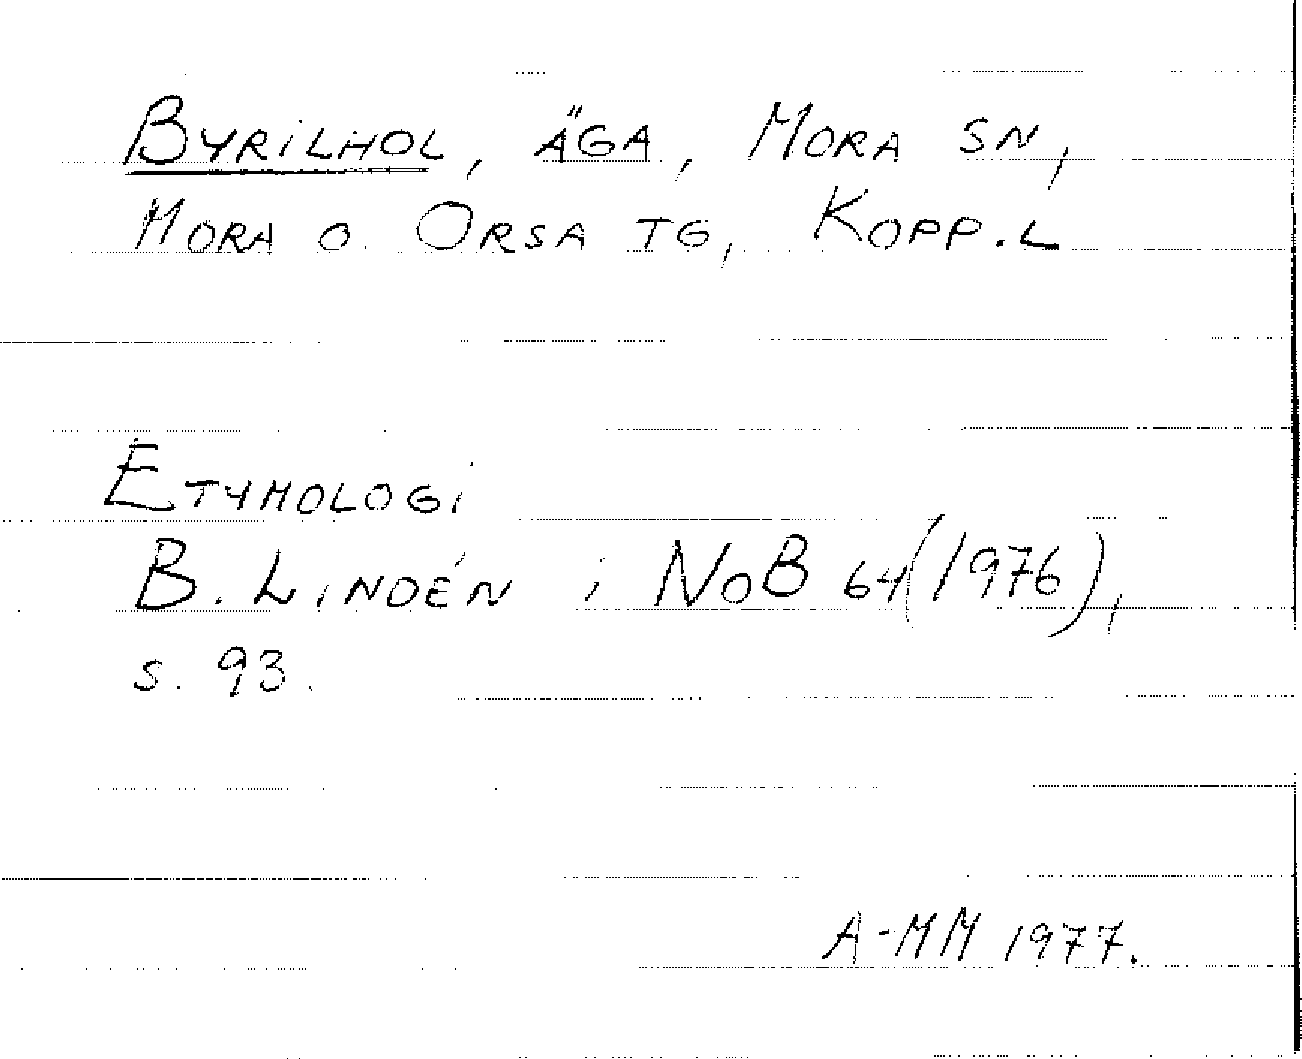 BYRILHOL, ÄGA, MORA SN,
MORA O. ORSA TG, KOPP.L
ETYMOLOGI
B. LINDÉN i NoB 64 (1976),
s. 93.
A-MM 1977.